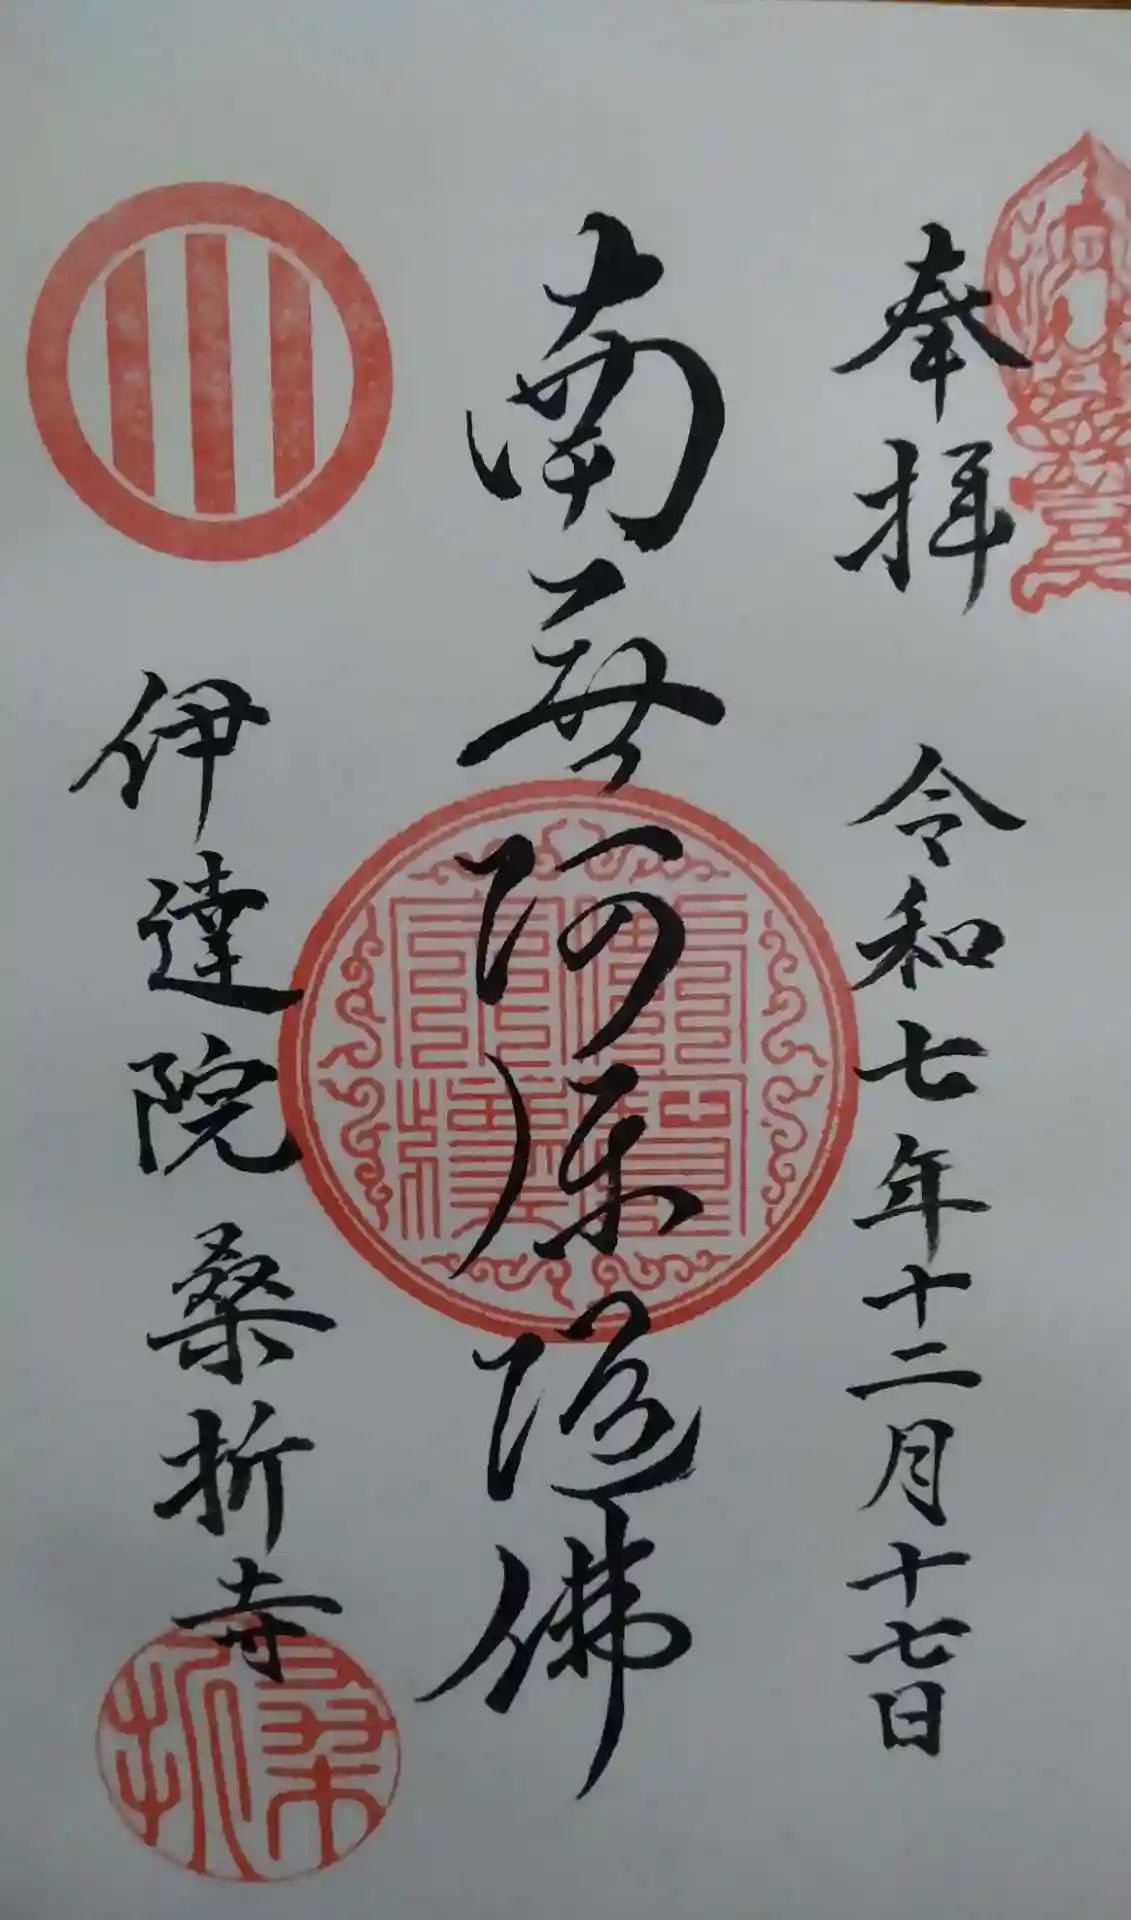 奉拝
令和七年十二月十七日
南無阿弥陀佛
伊達院
桑折寺
桑折